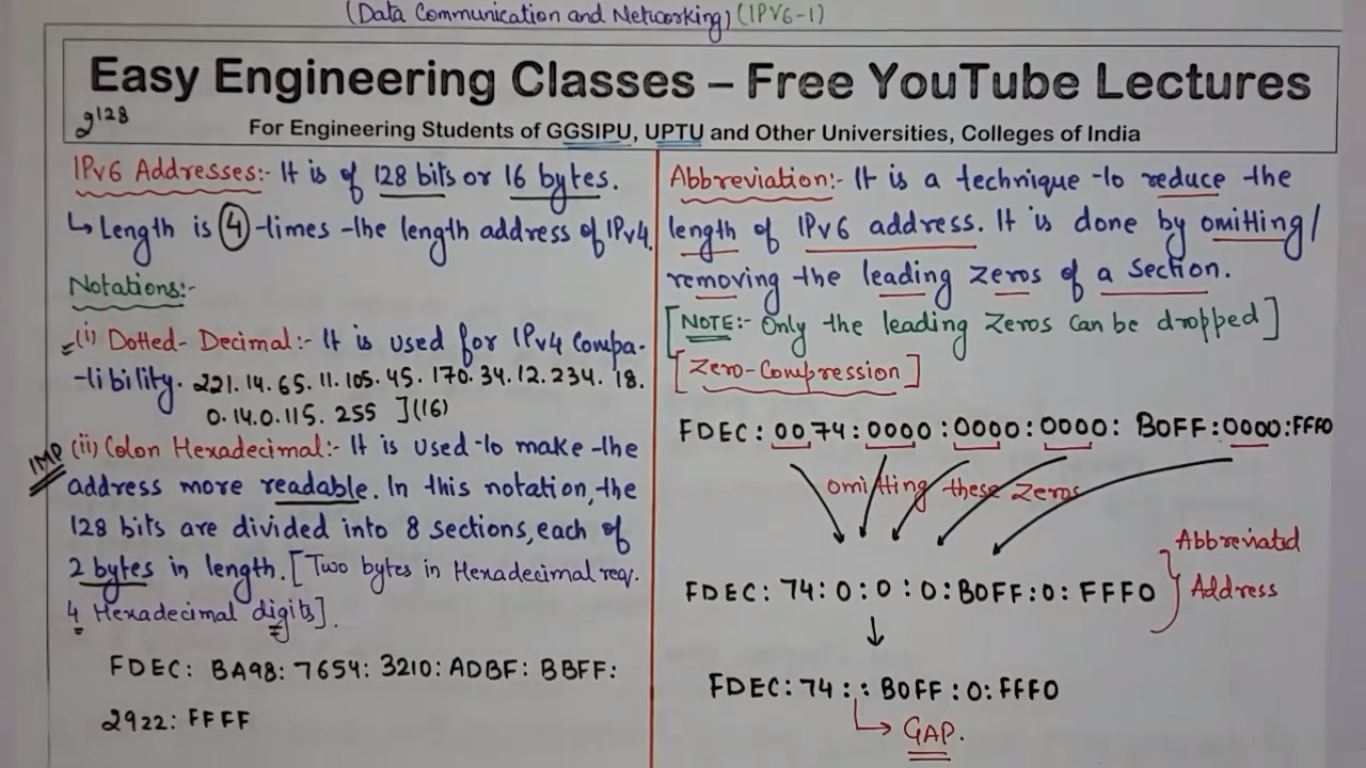 (Data Communication and Networking) (IPV6-1)
Easy Engineering Classes – Free YouTube Lectures
2^128
For Engineering Students of GGSIPU, UPTU and Other Universities, Colleges of India
IPv6 Addresses:- It is of 128 bits or 16 bytes.
↳ Length is 4 -times -the length address of IPv4.
Notations:-
(i) Dotted- Decimal:- It is used for IPv4 Compa-
-tibility. 221.14.65.11.105.45.170.34.12.234.18.
0.14.0.115.255 ](16)
IMP (ii) Colon Hexadecimal:- It is used to make -the
address more readable. In this notation, the
128 bits are divided into 8 sections, each of
2 bytes in length. [Two bytes in Hexadecimal req.
4 Hexadecimal digits].
FDEC: BA98: 7654: 3210: ADBF: BBFF:
2922: FFFF
Abbreviation:- It is a technique to reduce the
length of IPv6 address. It is done by omitting/
removing the leading zeros of a Section.
[NOTE:- Only the leading Zeros can be dropped]
[Zero-Compression]
FDEC: 0074: 0000: 0000: 0000: B0FF: 0000: FFF0
omitting these Zeros
FDEC: 74: 0: 0: 0: B0FF: 0: FFF0
Abbreviated
Address
FDEC: 74: : B0FF: 0: FFF0
GAP.